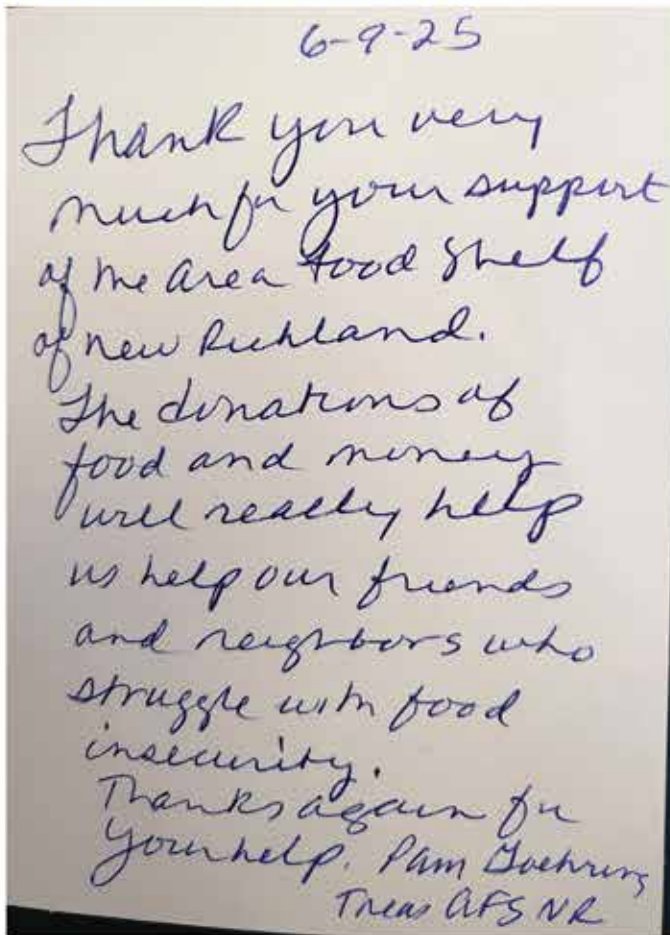 6-9-25
Thank you very
much for your support
of the Area Food Shelf
of New Richland.
The donations of
food and money
will really help
us help our friends
and neighbors who
struggle with food
insecurity.
Thanks again for
your help. Pam Goehring
Treas AFS NR